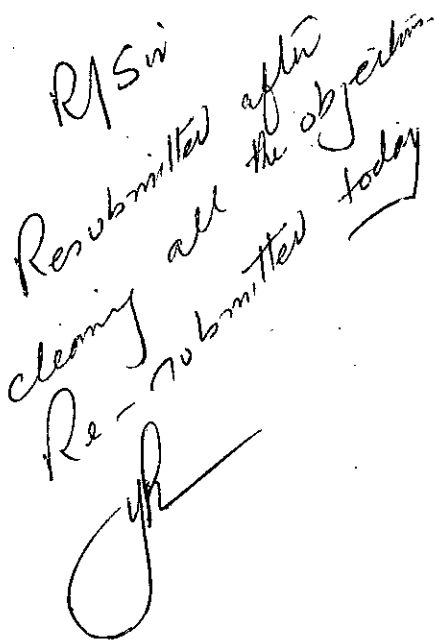 R/Sir
Resubmitted after
clearing all the objections.
Re-submitted today